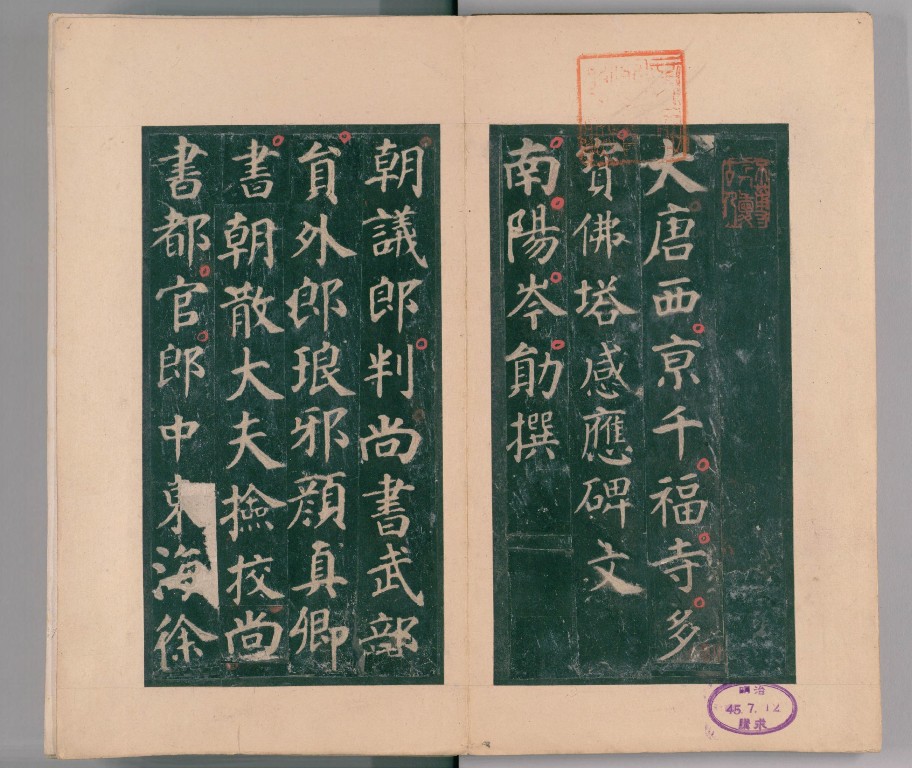 大唐西京千福寺多
寶佛塔感應碑文
南陽岑勛撰
朝議郎判尚書武部
貟外郎琅邪顔真卿
書朝散大夫撿挍尚
書都官郎中東海徐
明治
45.7.12
購求